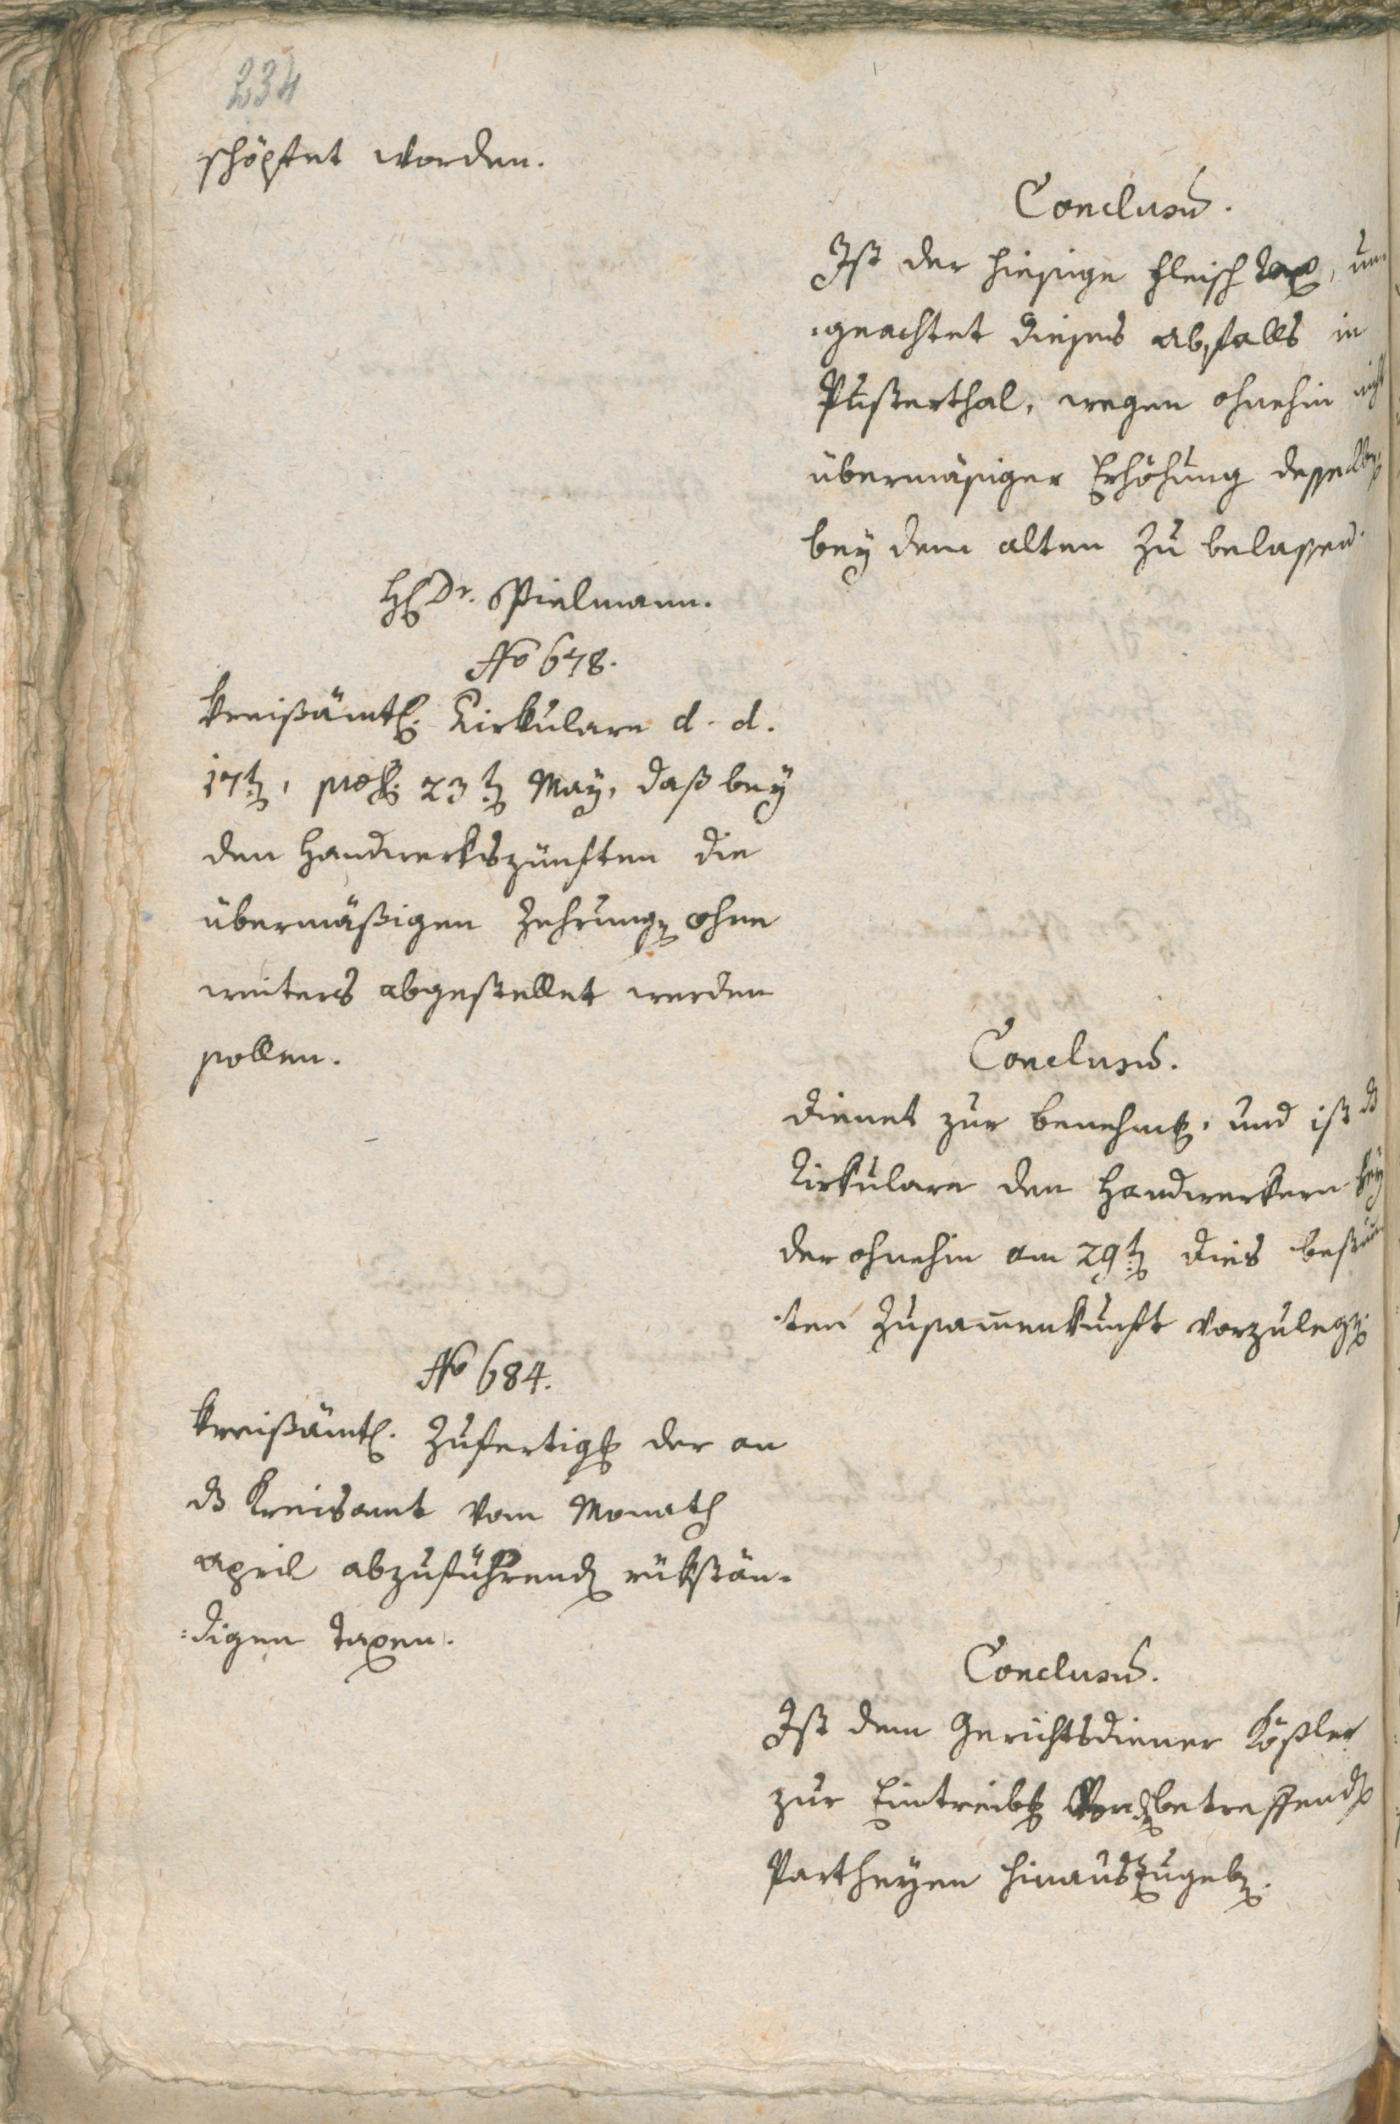 234
schöpfet worden.
Conclusũ.
Ist der hiesige Fleisch tax, un-
geachtet dieses abfalls in
Pusterthal, wegen ohnehin nicht
übermäsiger Erhöhung desselben
bey dem alten zu belassen.
H. Dr. Spielmann.
No 678.
Kreisämtl. Cirkulare d. d.
17t., præs. 23t. May, daß bey
den Handwerkszünften die
übermäßigen Zehrungen ohne
weiters abgestellet werden
sollen.
Conclusũ.
Dienet zur Benehmg. und ist ds
Cirkulare den Handwerkern bey
der ohnehin am 29t. dies bestim̃
ten Zusam̅enkunft vorzulegen.
No 684.
Kreisämtl. Zufertigg der an
ds Kreisamt vom Monath
April abzuführend rükstän-
digen Taxen.
Conclusũ.
Ist dem Gerichtsdiener Kößler
zur Eintreibg betreffend
Partheyen hinauszugeben.